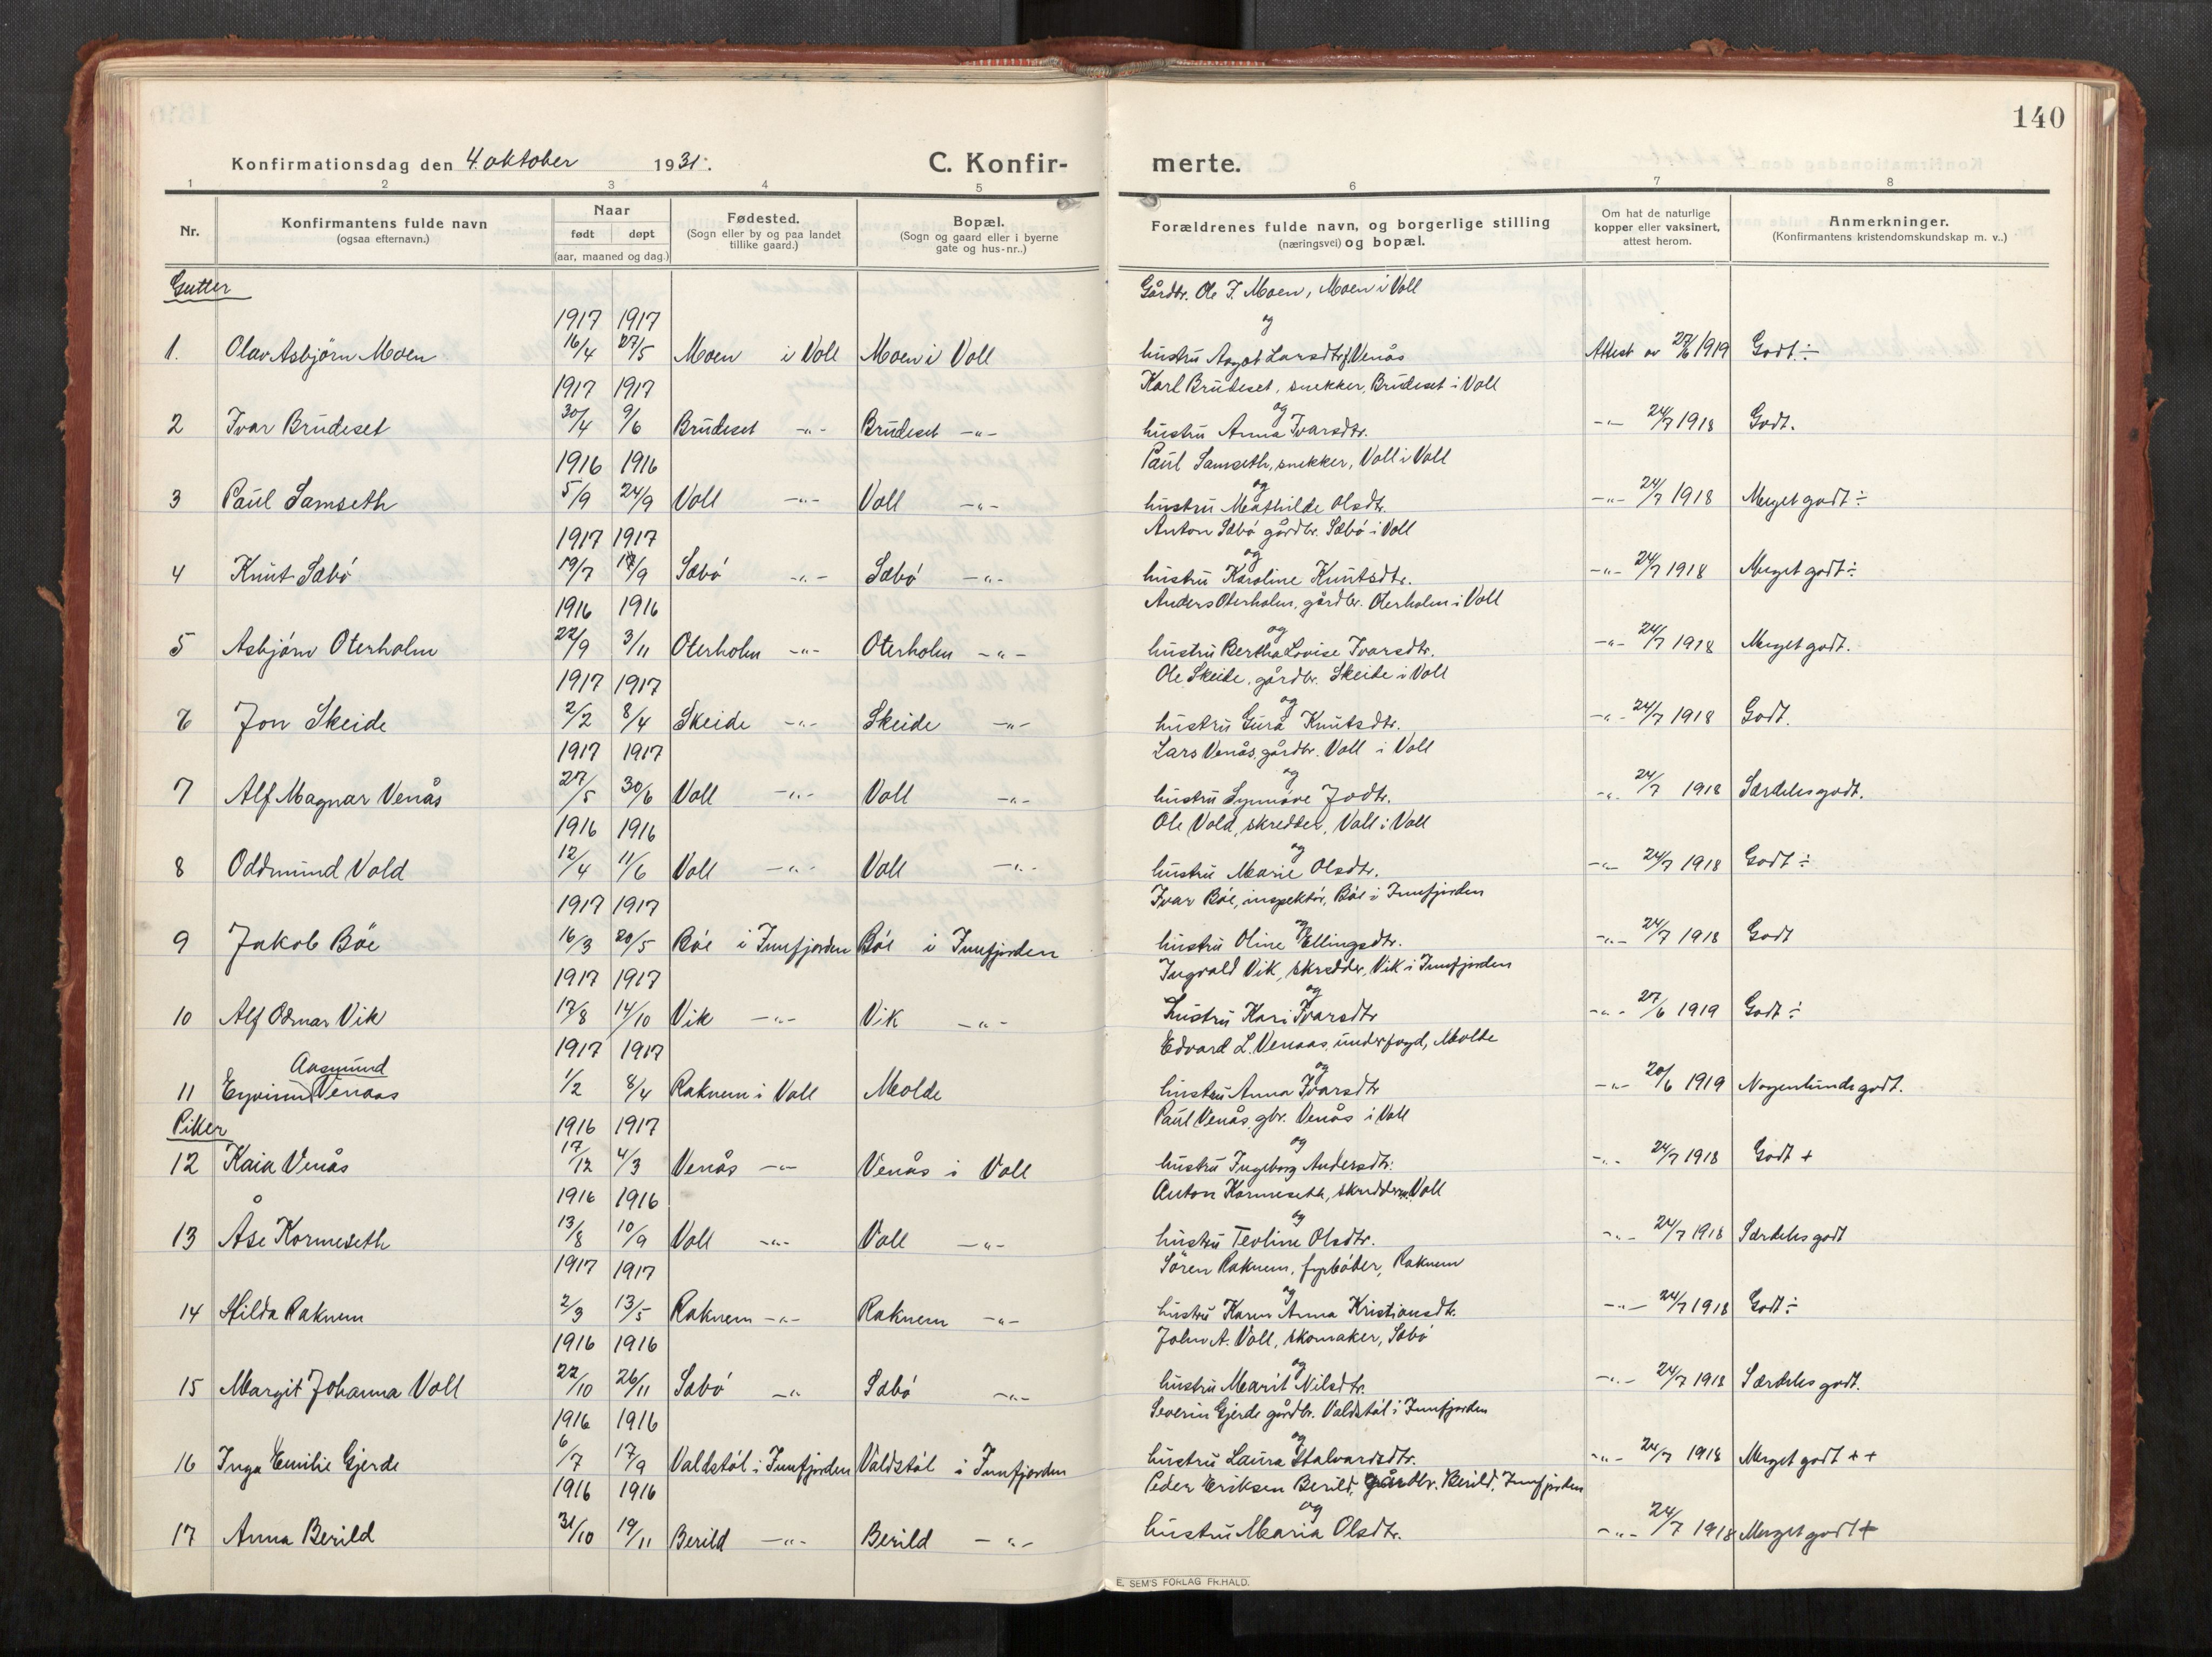 140
Konfirmationsdag den 4. oktober 1931.
C. Konfirmerte.
1 2 3 4 5 6 7 8
Nr.
Konfirmantens fulde navn
(ogsaa efternavn.)
Naar
født døpt
(aar, maaned og dag.)
Fødested.
(Sogn eller by og paa landet
tillike gaard.)
Bopæl.
(Sogn og gaard eller i byerne
gate og hus-nr..)
Forældrenes fulde navn, og borgerlige stilling
(næringsvei) og bopæl.
Om hat de naturlige
kopper eller vaksinert,
attest herom.
Anmerkninger.
(Konfirmantens kristendomskundskap m. v..)
Gutter
Gårdbr. Ole J. Moen, Moen i Voll
1917 1917 og
1. Olav Asbjörn Moen 16/4 27/5 Moen i Voll Moen i Voll hustru Aagot Larsdtr f. Venås Attest av 27/6 1919 Godt ÷
1917 1917 Karl Brudeset, snekker, Brudeset i Voll
og
2 Ivar Brudeset 30/4 9/6 Brudeset -"- Brudeset -"- hustru Anna Ivarsdtr. -"- 24/7 1918 Godt.
1916 1916 Paul Samseth, snekker, Voll i Voll
og
3 Paul Samseth 5/9 24/9 Voll -"- Voll -"- hustru Mathilde Olsdtr. -"- 24/7 1918 Meget godt ÷
1917 1917 Anton Sæbö gårdbr. Sæbö i Voll
og
4 Knut Sæbö 19/7 17/9 Sæbö -"- Sæbö -"- hustru Karoline Knutsdtr. -"- 24/7 1918 Meget godt ÷
1916 1916 Anders Oterholm, gårdbr. Oterholm i Voll
og
5 Asbjörn Oterholm 22/9 3/11 Oterholm -"- Oterholm -"- hustru Bertha Lovise Ivarsdtr. -"- 24/7 1918 Meget godt.
1917 1917 Ole Skeide, gårdbr. Skeide i Voll
og
6 Jon Skeide 2/2 8/4 Skeide -"- Skeide -"- hustru Gurå Knutsdtr. -"- 24/7 1918 Godt.
1917 1917 Lars Venås, gårdbr. Voll i Voll
og
7 Alf Magnar Venås 27/5 30/6 Voll -"- Voll -"- hustru Synnöve Jodtr. -"- 24/7 1918 Særdeles godt.
1916 1916 Ole Vold, skredder, Voll i Voll
og
8 Oddmund Vold 12/4 11/6 Voll -"- Voll -"- hustru Marie Olsdtr. -"- 24/7 1918 Godt ÷
1917 1917 Ivar Böe, inspektör, Böe i Innfjorden
og
9 Jakob Böe 16/3 20/5 Böe i Innfjorden Böe i Innfjorden hustru Oline Ellingsdtr. -"- 24/7 1918 Godt
1917 1917 Ingvald Vik, skredder, Vik i Innfjorden
og
10 Alf Odmar Vik 17/8 14/10 Vik -"- Vik -"- hustru Kari Ivarsdtr -"- 27/6 1919 Godt ÷
1917 1917 Edvard L. Venaas, underfogd, Molde
Aasmund og
11 Eyvinn Venaas 1/2 8/4 Raknem i Voll Molde hustru Anna Ivarsdtr -"- 20/6 1919 Nogenlunde godt.
Piker 1916 1917 Paul Venås, gbr. Venås i Voll
og
12 Kaia Venås 17/12 4/3 Venås -"- Venås i Voll hustru Ingeborg Andersdtr. -"- 24/7 1918 Godt +
1916 1916 Anton Kormeseth, skredder, Voll
og
13 Åse Kormeseth 13/8 10/9 Voll -"- Voll -"- hustru Teoline Olsdtr. -"- 24/7 1918 Særdeles godt
1917 1917 Sören Raknem, fyrböter, Raknem
og
14 Hilda Raknem 2/3 13/5 Raknem -"- Raknem -"- hustru Karen Anna Kristiansdtr. -"- 24/7 1918 Godt ÷
1916 1916 John A. Voll, skomaker, Sæbö
og
15 Margit Johanna Voll 22/10 26/11 Sæbö -"- Sæbö -"- hustru Marit Nilsdtr. -"- 24/7 1918 Særdeles godt.
1916 1916 Severin Gjerde gårdbr. Valdstöl i Innfjorden
og
16 Inga Emilie Gjerde 6/7 17/9 Valdstöl i Innfjorden Valdstöl i Innfjorden hustru Laura Halvardsdtr. -"- 24/7 1918 Meget godt + +
1916 1916 Peder Eriksen Berild, gårdbr. Berild, Innfjorden
og
17 Anna Berild 31/10 19/11 Berild -"- Berild -"- hustru Maria Olsdtr. -"- 24/7 1918 Meget godt +
E. SEM'S FORLAG FR.HALD.